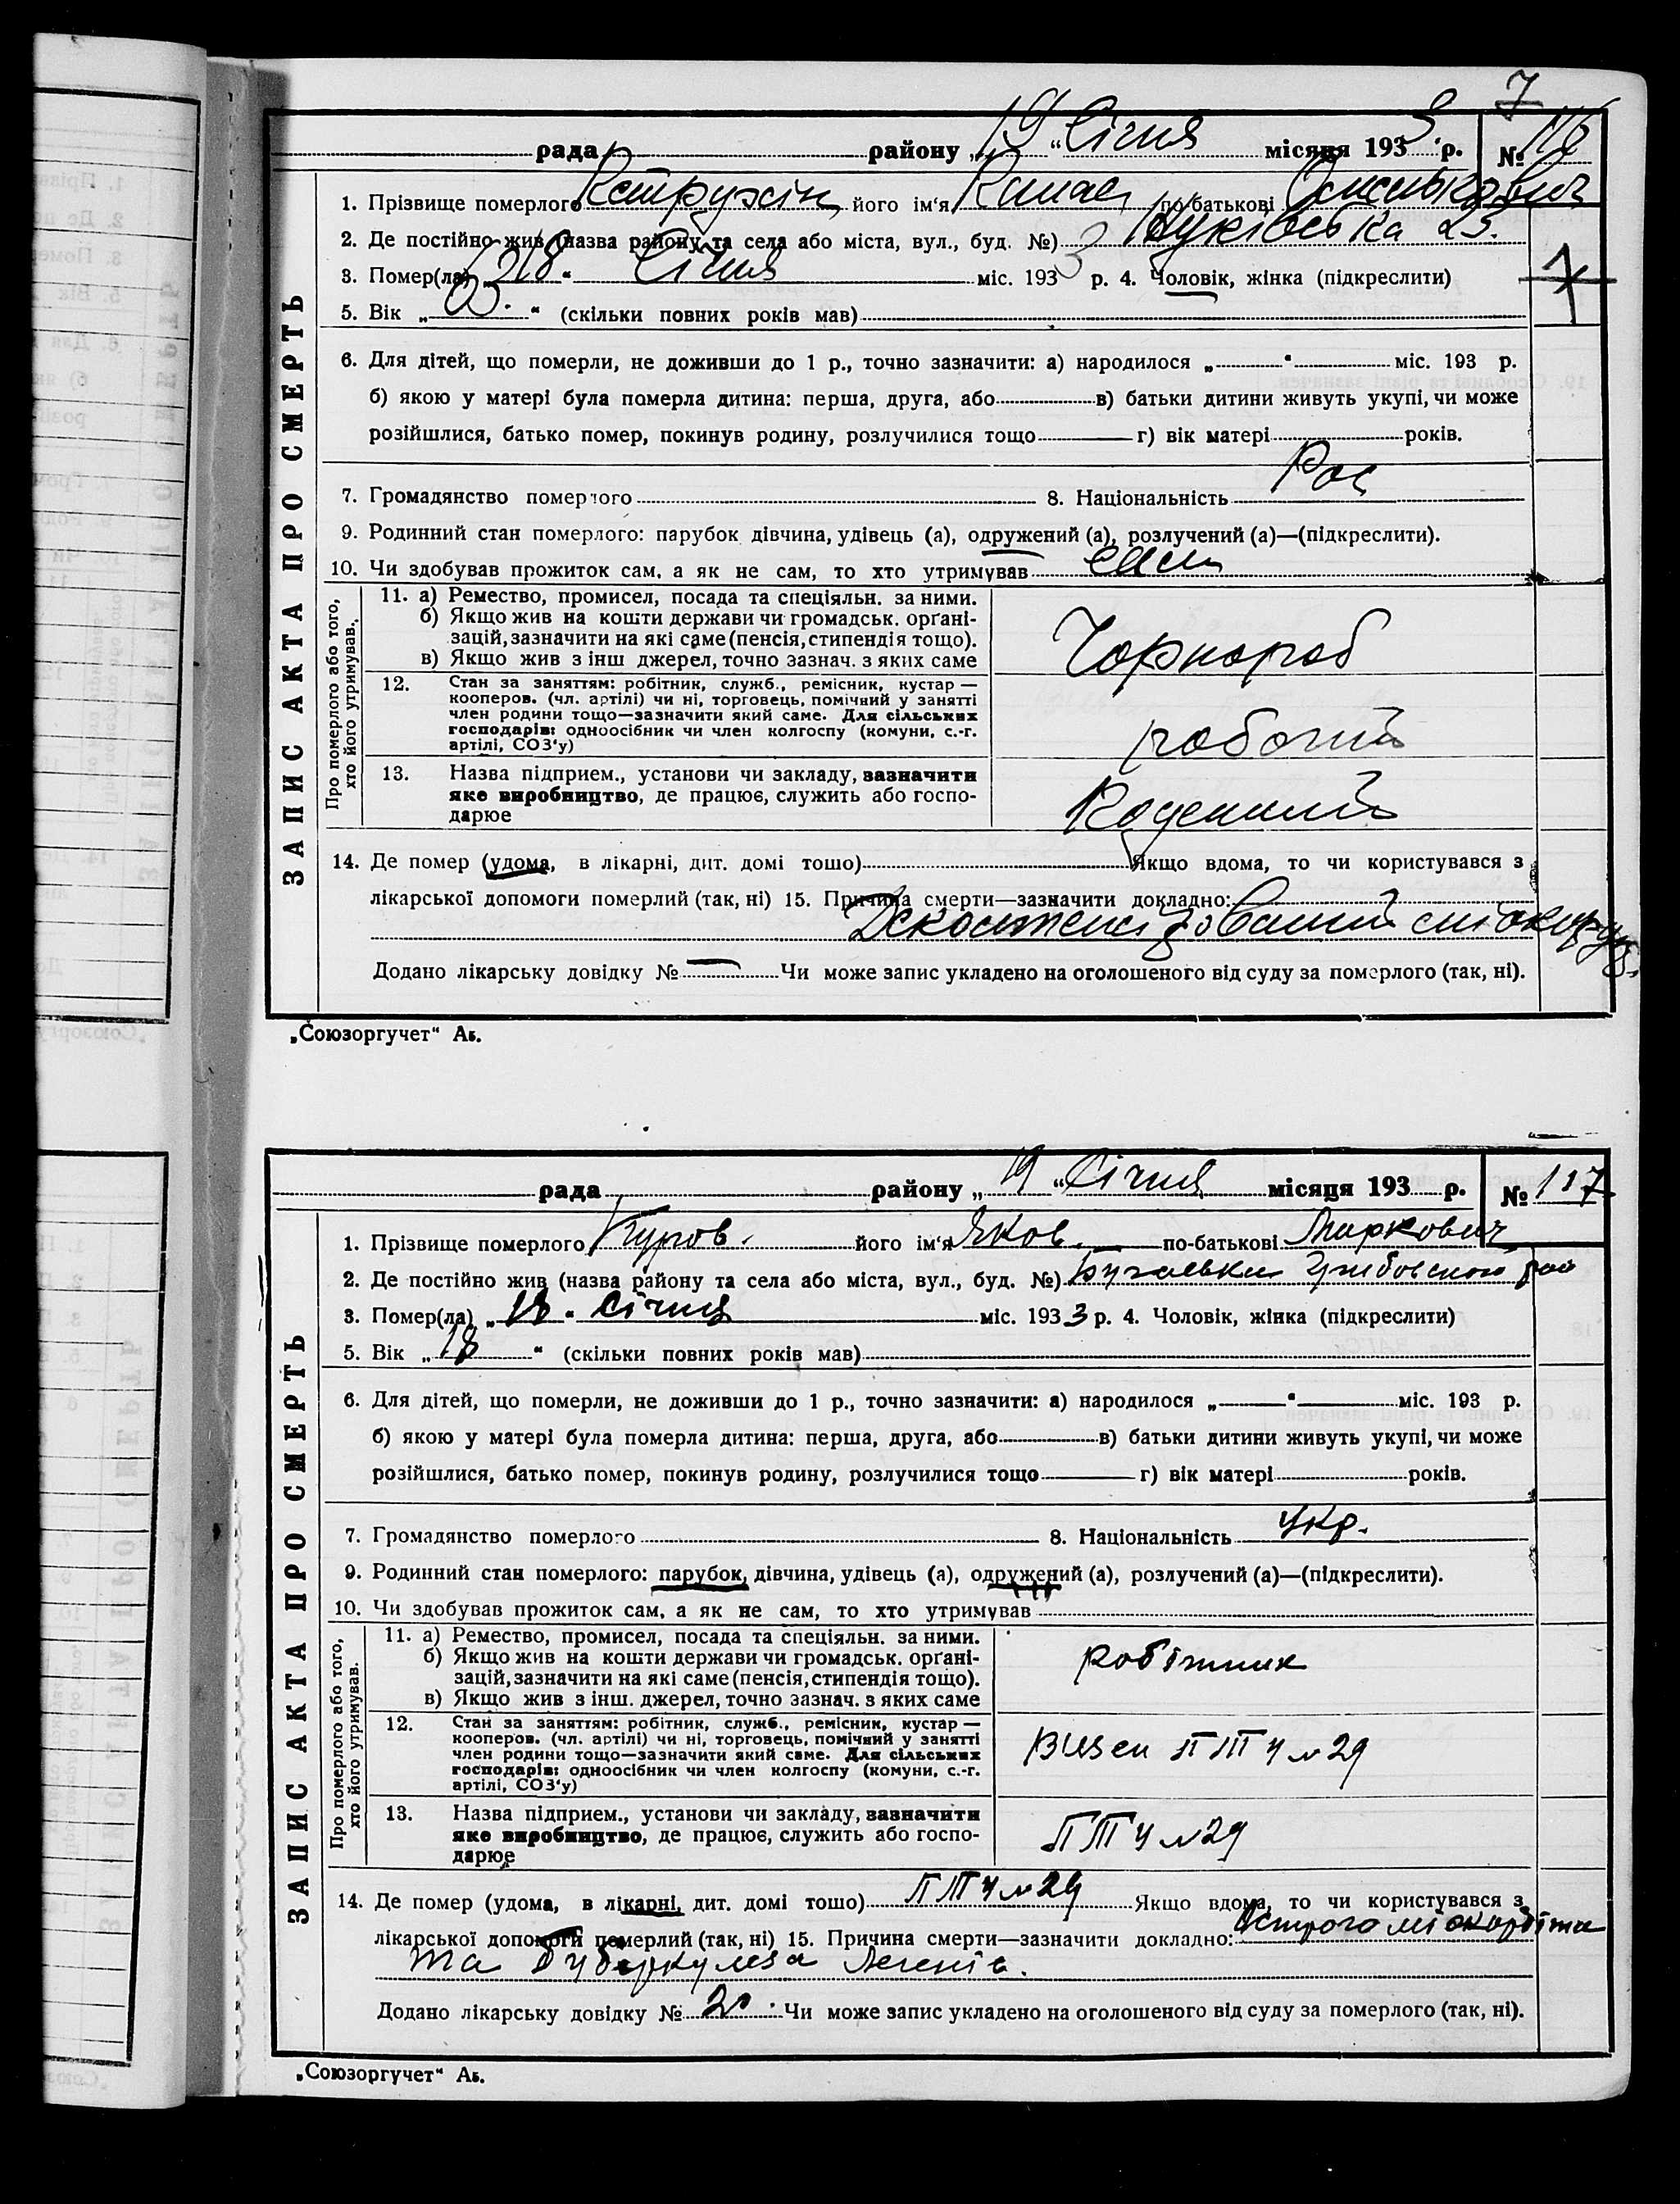 7
рада района „19“ Січня місяця 193 3 р. № 116
1. Прізвище померлого його ім'я по-батькові
2. Де постійно жив (назва району та села або міста, вул., буд. №) 23.
3. Помер(ла) „18“ Січня міс. 193 3 р. 4. Чоловік, жінка (підкреслити)
5. Вік „ “ (скільки повних років мав)
6. Для дітей, що померли, не доживши до 1 р., точно зазначити: а) народилося „ “ міс. 193 р.
б) якою у матері була померла дитина: перша, друга, або в) батьки дитини живуть укупі, чи може
розійшлися, батько помер, покинув родину, розлучилися тощо г) вік матері років.
7. Громадянство померлого 8. Національність Рос
9. Родинний стан померлого: парубок дівчина, удівець (а), одружений (а), розлучений (а)—(підкреслити).
10. Чи здобував прожиток сам, а як не сам, то хто утримував сам
ЗАПИС АКТА ПРО СМЕРТЬ
Про померлого або того, хто його утримував.
11. а) Ремество, промисел, посада та спеціяльн. за ними.
б) Якщо жив на кошти держави чи громадськ. орґані-
зацій, зазначити на які саме (пенсія, стипендія тощо).
в) Якщо жив з інш джерел, точно зазнач. з яких саме
Чорнороб
12. Стан за заняттям: робітник, служб., ремісник, кустар —
кооперов. (чл. артілі) чи ні, торговець, помічний у занятті
член родини тощо—зазначити який саме. Для сільських
господарів: одноосібник чи член колгоспу (комуни, с.-г.
артілі, СОЗ'у)
робочий
13. Назва підприєм., установи чи закладу, зазначити
яке виробництво, де працює, служить або госпо-
дарює
14. Де помер (удома, в лікарні, дит. домі тошо) Якщо вдома, то чи користувався з
лікарської допомоги померлий (так, ні) 15. Причина смерти—зазначити докладно:
Додано лікарську довідку № — Чи може запис укладено на оголошеного від суду за померлого (так, ні).
„Союзоргучет“ Аб.
рада району „19“ Січня місяця 193 р. № 117
1. Прізвище померлого його ім'я Яков по-батькові Маркович
2. Де постійно жив (назва району та села або міста, вул., буд. №)
3. Помер(ла) „18“ Січня міс. 193 3 р. 4. Чоловік, жінка (підкреслити)
5. Вік „18“ (скільки повних років мав)
6. Для дітей, що померли, не доживши до 1 р., точно зазначити: а) народилося „ “ міс. 193 р.
б) якою у матері була померла дитина: перша, друга, або в) батьки дитини живуть укупі, чи може
розійшлися, батько помер, покинув родину, розлучилися тощо г) вік матері років.
7. Громадянство померлого 8. Національність Укр.
9. Родинний стан померлого: парубок, дівчина, удівець (а), одружений (а), розлучений (а)—(підкреслити).
10. Чи здобував прожиток сам, а як не сам, то хто утримував
ЗАПИС АКТА ПРО СМЕРТЬ
Про померлого або того, хто його утримував.
11. а) Ремество, промисел, посада та спеціяльн. за ними.
б) Якщо жив на кошти держави чи громадськ. орґані-
зацій, зазначити на які саме (пенсія, стипендія тощо).
в) Якщо жив з інш. джерел, точно зазнач. з яких саме
робітник
12. Стан за заняттям: робітник, служб., ремісник, кустар —
кооперов. (чл. артілі) чи ні, торговець, помічний у занятті
член родини тощо—зазначити який саме. Для сільських
господарів: одноосібник чи член колгоспу (комуни, с.-г.
артілі, СОЗ'у)
ПТУ №29
13. Назва підприєм., установи чи закладу, зазначити
яке виробництво, де працює, служить або госпо-
дарює
ПТУ №29
14. Де помер (удома, в лікарні, дит. домі тошо) ПТУ №29 Якщо вдома, то чи користувався з
лікарської допомоги померлий (так, ні) 15. Причина смерти—зазначити докладно: Острого міокордіта
та Туберкулеза легенів.
Додано лікарську довідку № 20 Чи може запис укладено на оголошеного від суду за померлого (так, ні).
„Союзоргучет“ Аб.